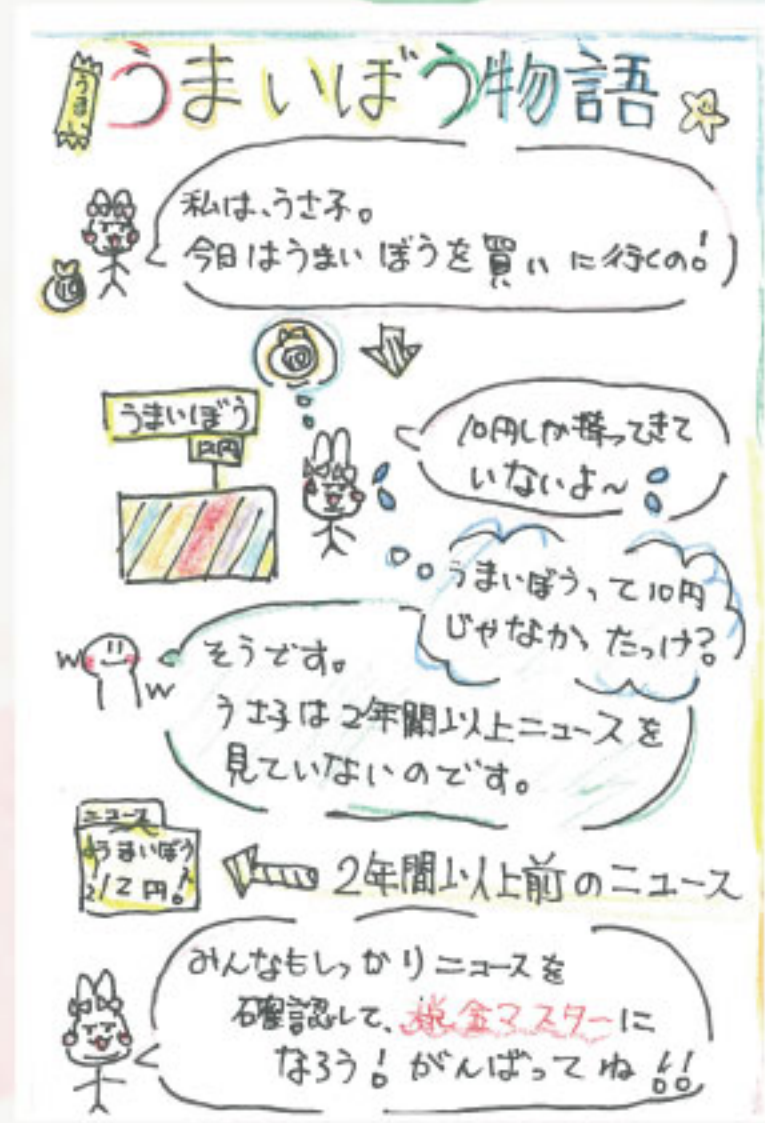 うまいぼう物語
うまい
私は、うさ子。
今日はうまいぼうを買いに行くの!
10
10
うまいぼう
12円
10円しか持ってきて
いないよ～
うまいぼうって10円
じゃなかったっけ?
そうです。
うさ子は2年間以上ニュースを
見ていないのです。
ニュース
うまいぼう
12円!
2年間以上前のニュース
みんなもしっかりニュースを
確認して、税金マスターに
なろう!がんばってね!!